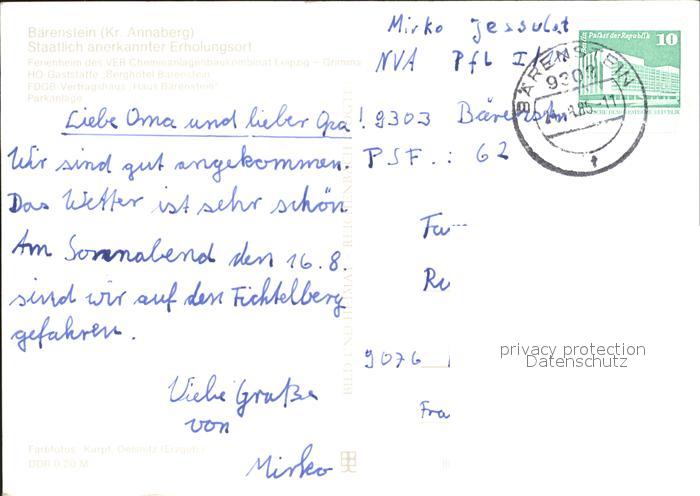 Bärenstein (Kr. Annaberg)
Staatlich anerkannter Erholungsort
Ferienheim des VEB Chemieanlagenbaukombinat Leipzig - Grimma
HO-Gaststätte „Berghotel Bärenstein"
FDGB-Vertragshaus „Haus Bärenstein"
Parkanlage
Liebe Oma und lieber Opa!
Wir sind gut angekommen.
Das Wetter ist sehr schön
Am Sonnabend den 16.8.
sind wir auf den Fichtelberg
gefahren.
Viele Grüße
von
Mirko
Farbfotos: Kurpf, Oelsnitz (Erzgeb.)
DDR 0,20 M
BILD UND HEIMAT REICHENBACH (VOGTL)
Mirko Jessulat
NVA Pfl
9303 Bärenstein
PSF.: 62
Fa
Re
9076
Fra
Palast der Republik 10
DEUTSCHE DEMOKRATISCHE REPUBLIK
BÄRENSTEIN
9303
privacy protection
Datenschutz